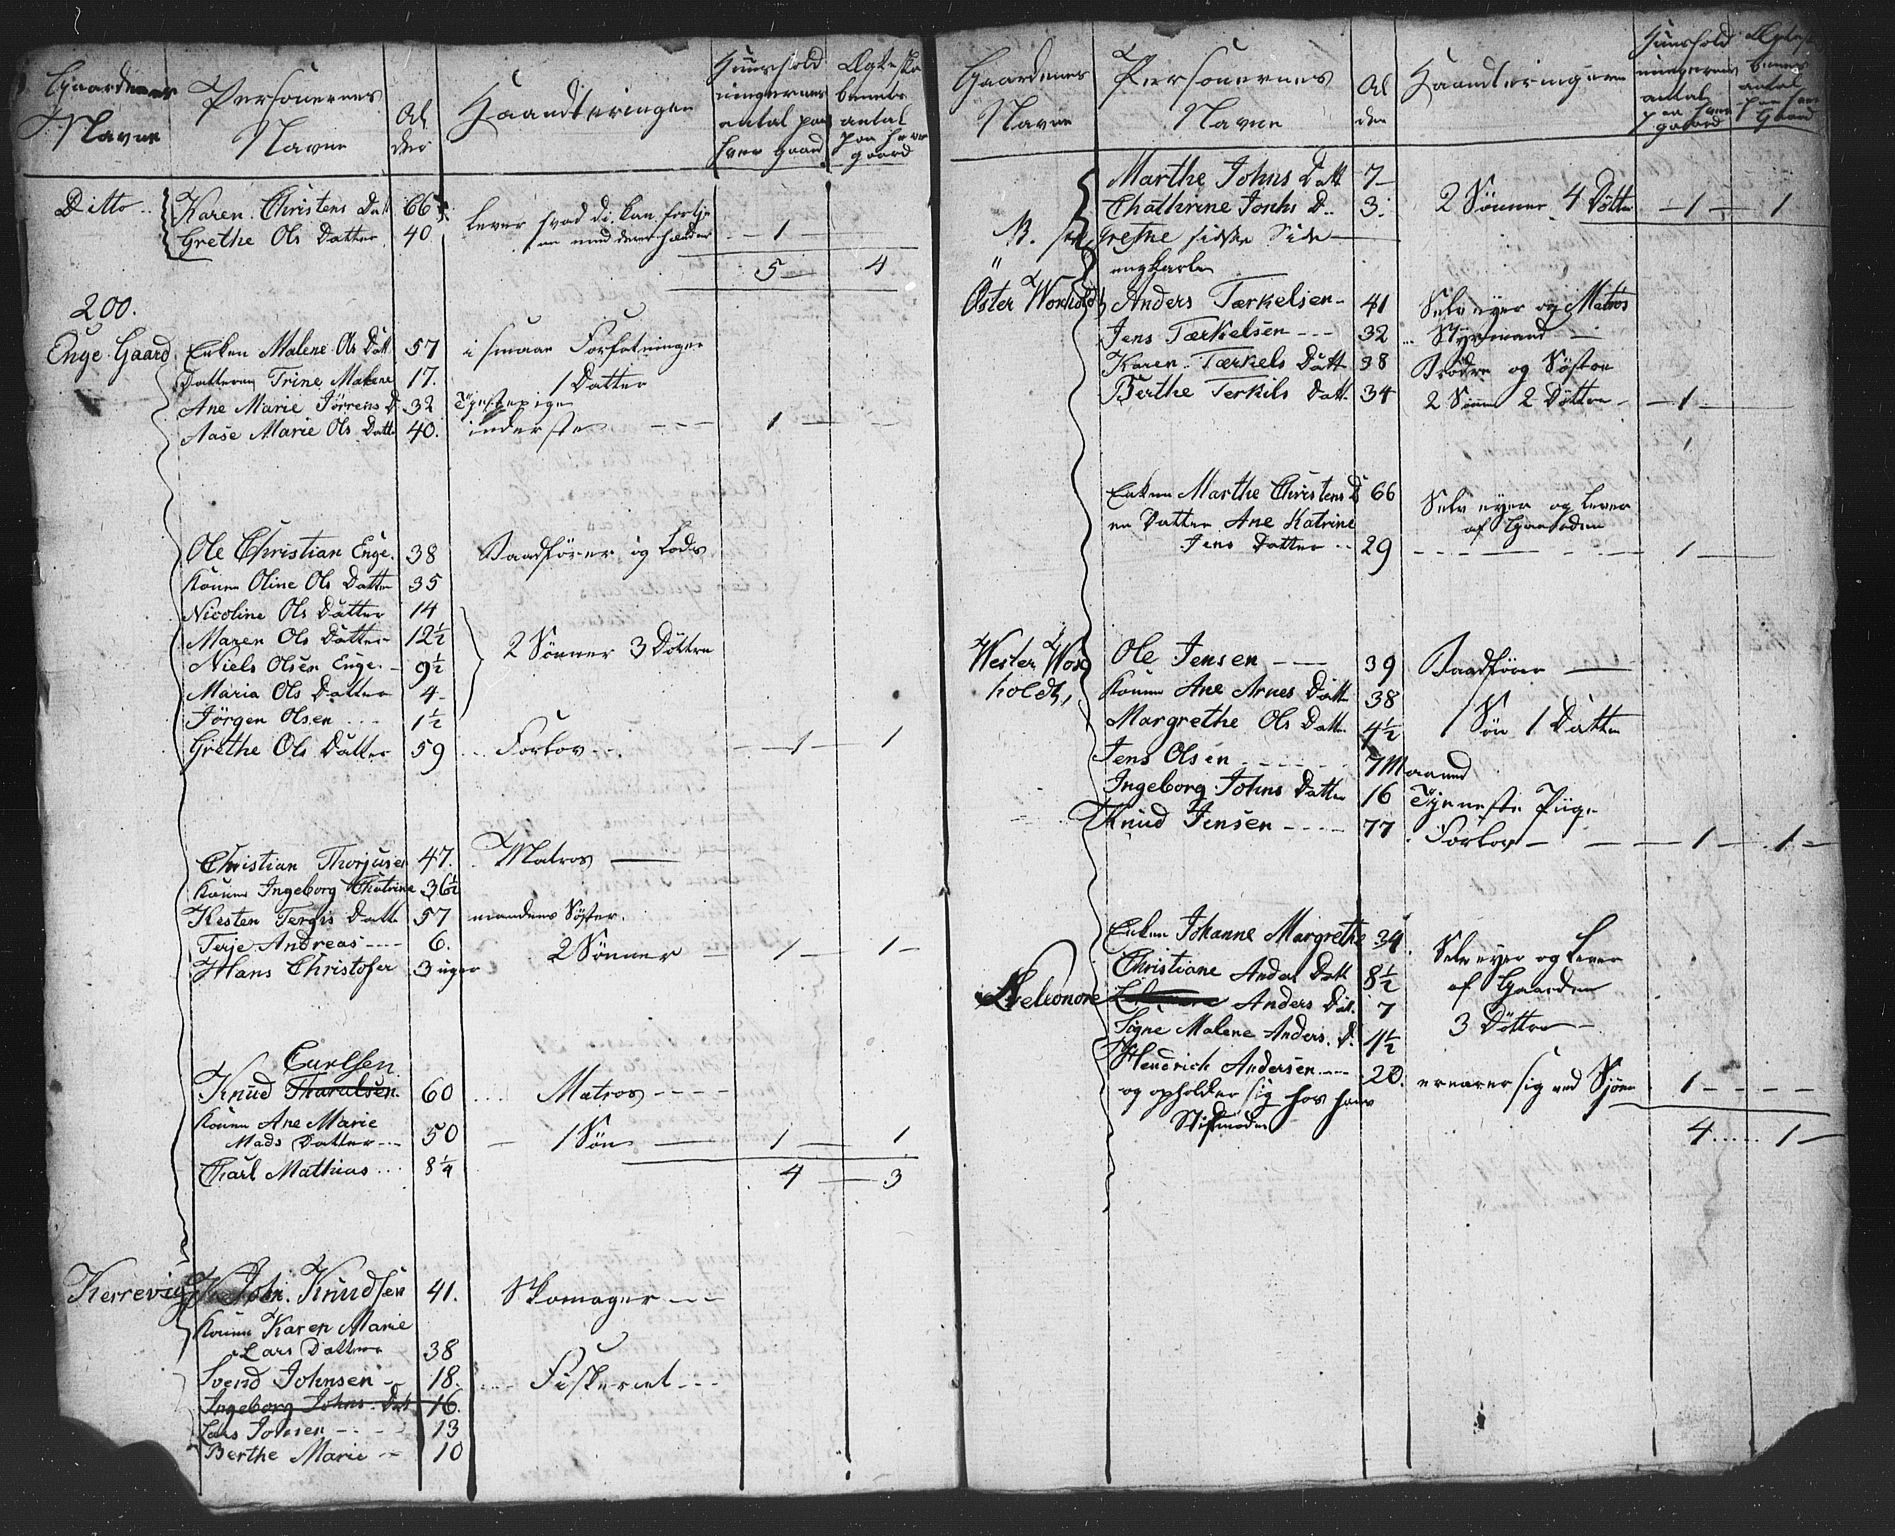 Gaardenes Navne
Personernes Navne
Alder
Haandteringen
Huusholdningernes antal paa hver Gaard
Ægteskabenes antal paa hver gaard
Ditto
Karen Christens Dat 66
Grethe Ols Datter 40
lever hvad di kan fortje
1
5 4
200.
Enge Gaard
Enken Malene Ols Datt 57 i smaae Forfatninger
Datteren Trine Malene 17. 1 Datter
Ane Marie Jörrens D 32 Tjenstepige
Aase Marie Ols Datte 40. inderste 1
Ole Christian Enge. 38 Baadförer og Lods
Konen Oline Ols Datter 35
Nicoline Ols Datter 14
Maren Ols Datter 12½ 2 Sönner 3 Döttre
Niels Olsen Enge 9½
Maria Ols Datter 4
Jörgen Olsen 1½
Grethe Ols Datter 59 Forlov 1 1
Christian Thorjusen 47. Matros
Konen Ingeborg Chatrine 36½
Kesten Tergis Datte 57 mandens Söster.
Terje Andreas 6. 2 Sönner 1 1
Hans Christofer 3 uger
Carlsen
Knud Tharalsen 60 Matros
Konen Ane Marie
Mads Datter 50 1 Sön 1 1
Charl Mathias 8¼ 4 3
Kerrevig
John Knudsen 41. Skomager
Konen Karen Marie
Lars Datter 38
Svend Johnsen 18. Fiskeriet
Ingeborg Johns Dat 16.
Lars Johnsen 13
Berthe Marie 10
Gaardenes Navne
Personernes Navne
Alder
Haandteringen
Huusholdningernes antal paa hver gaard
Ægteskabenes antal paa hver Gaard
Marthe Johns Datt 7
Chathrine Johns D 3. 2 Sönner 4 Döttre 1 1
sidste Side
Öster Woxhold
Anders Tærkelsen 41 Selv eyer og Matros
Jens Tærkelsen 32 Styrmand
Karen Tærkels Datt 38 Brödre og Söstre
Berthe Terkils Datt 34 2 Sönner 2 Döttre 1
1
Enken Marthe Christens D 66 Selv eyer og Lever
en Datter Ane Katrine af Gaarden
Jens Datter 29 1
Wester Wox
holdt,
Ole Jensen 39 Baadförer
Konen Ane Arnes Datt 38
Margrethe Ols Datte 4½ 1 Sön 1 Datter
Jens Olsen 7 Maaned
Ingeborg Johns Datter 16 Tjeneste Piige
Knud Jensen 77 Forlov 1 1
Enken Johanne Margrethe 34. Selv eyer og Lever
Christiane Anders Datt 8½ af Gaarden
Eleonore Anders Dat. 7
Signe Malene Anders. D. 1½ 3 Döttre
Hendrich Andersen 20. ernærer sig ved Sjöen 1
og opholder sig hos hans
Stifmoder
4 1